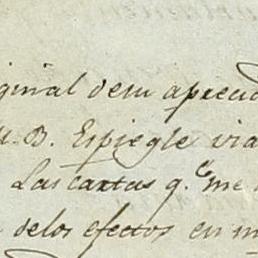 iginal desu aprecia
M. B. Espiegle via
Las cartas q.e me
delos efectos en m